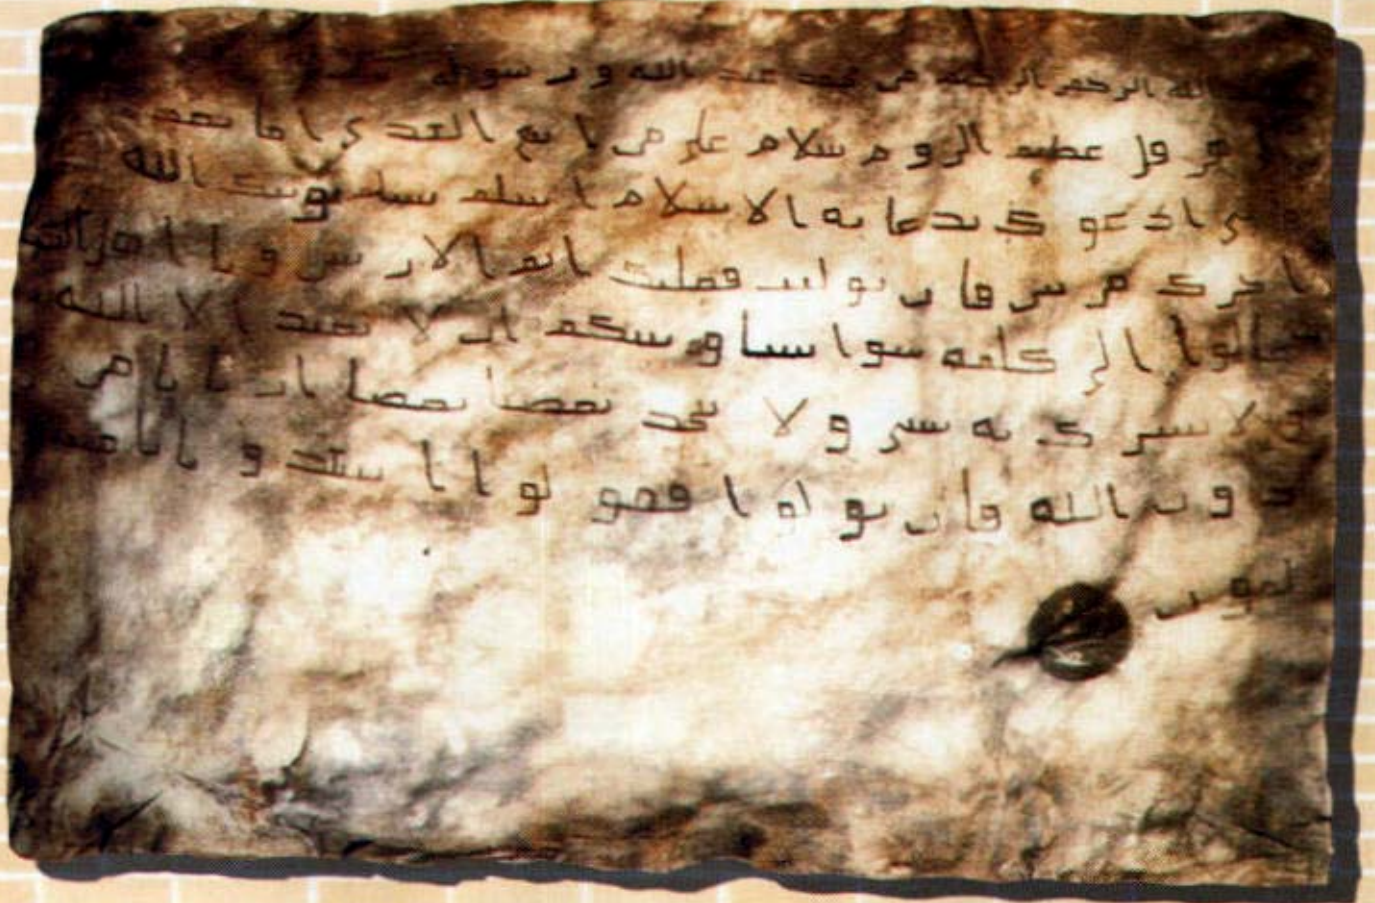 الله الرحمن الرحيم من محمد عبد الله ورسوله
هرقل عظيم الروم سلام على من اتبع الهدى اما بعد
ادعوك بدعاية الاسلام اسلم تسلم يوتك الله
اجرك مرتين فان توليت فعليك اثم الاريسين ويا اهل الكتاب
تعالوا الى كلمة سوا بيننا وبينكم ان لا نعبد الا الله
ولا نشرك به شي ولا يتخذ بعضنا بعضا اربابا من
دون الله فان تولوا فقولوا اشهدوا بانا مس
لمون